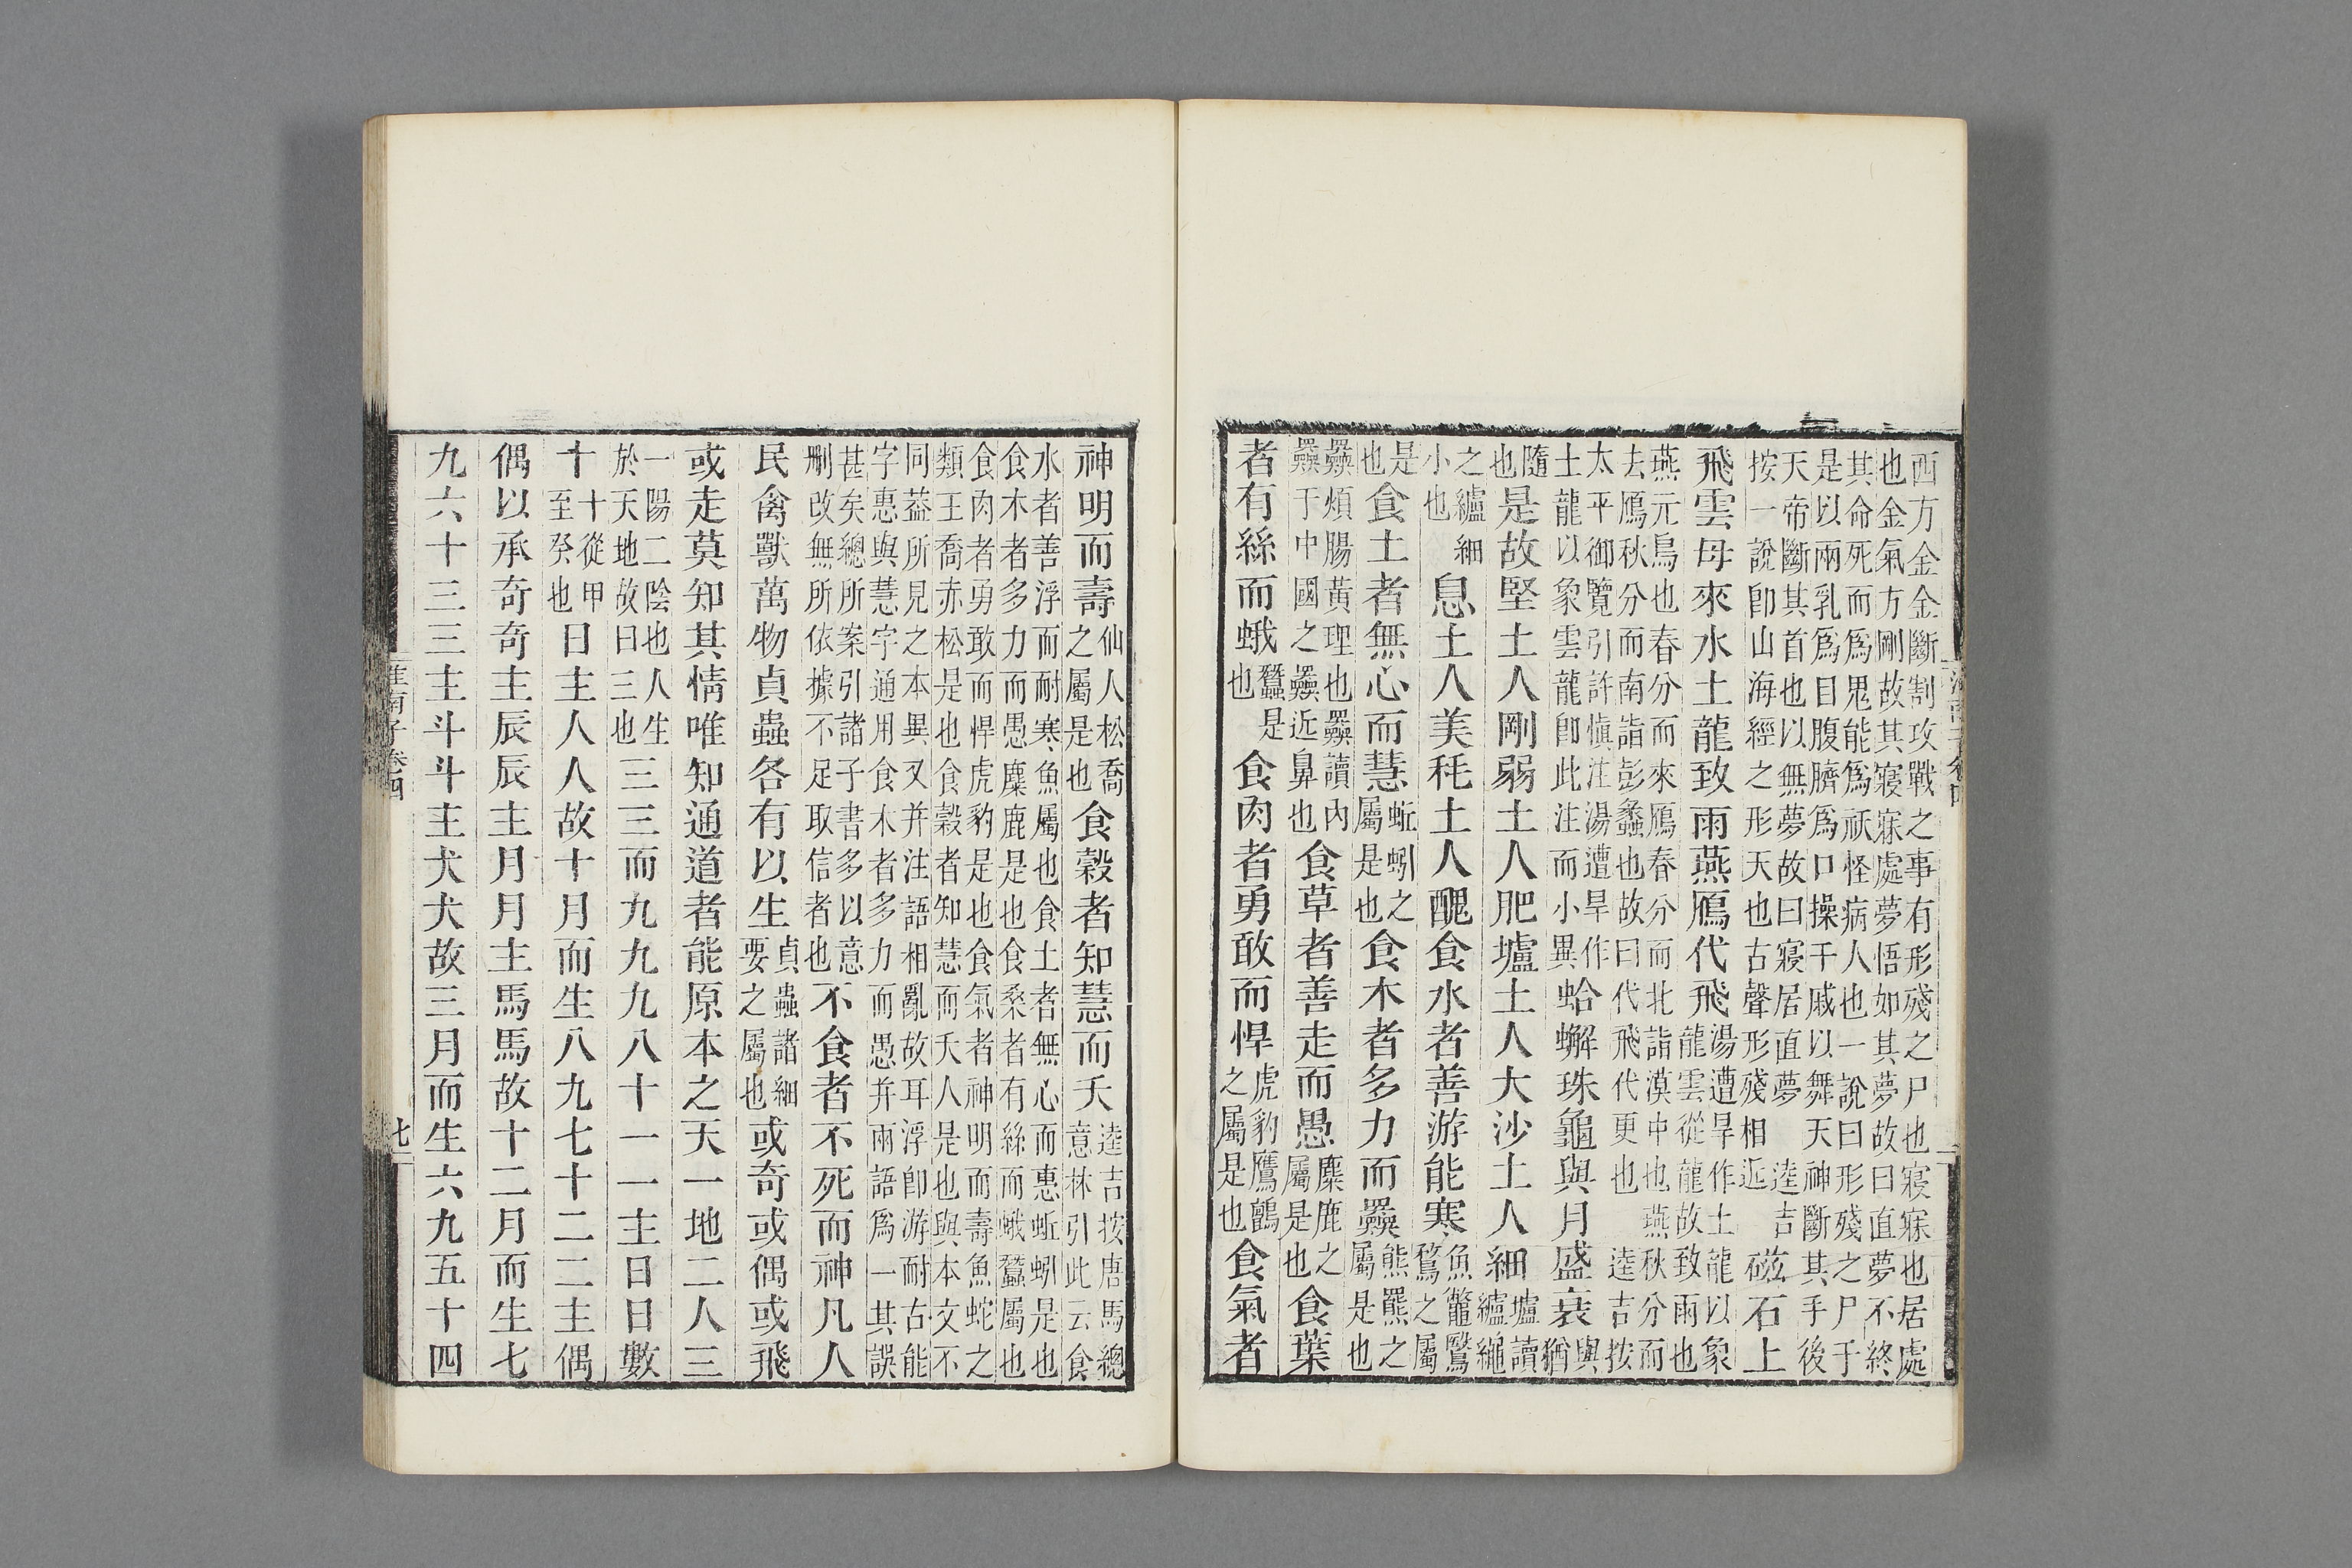 西方金金斷割攻戰之事有形殘之尸也寢寐也居處
也金氣方剛故其寢寐處夢悟如其夢故曰直夢不終
其命死而爲鬼能爲祅怪病人也一說曰形殘之尸于
是以兩乳爲目腹臍爲口操干戚以舞天神斷其手後
天帝斷其首也以無夢故曰寢居直夢逵吉
按一說卽山海經之形天也古聲形殘相近磁石上
飛雲母來水土龍致雨燕鴈代飛湯遭旱作土龍以象
龍雲從龍故致雨也
燕元鳥也春分而來鴈春分而北詣漠中也燕秋分而
去鴈秋分而南詣彭蠡也故曰代飛代更也逵吉按
太平御覽引許愼注湯遭旱作
土龍以象雲龍卽此注而小異蛤蠏珠龜與月盛衰與
猶
隨
也是故堅土人剛弱土人肥壚土人大沙土人細壚讀
纑繩
之纑細
小也息土人美秏土人醜食水者善游能寒魚鼈鷖
鶩之屬
是
也食土者無心而慧蚯蚓之
屬是也食木者多力而𡚤熊羆之
屬是也
𡚤煩腸黃理也𡚤讀內
𡚤于中國之𡚤近鼻也食草者善走而愚麋鹿之
屬是也食葉
者有絲而蛾蠶是
也食肉者勇敢而悍虎豹鷹鸇
之屬是也食氣者
神明而壽仙人松喬
之屬是也食穀者知慧而夭逵吉按唐馬總
意林引此云食
水者善浮而耐寒魚屬也食土者無心而惠蚯蚓是也
食木者多力而愚麋鹿是也食桑者有絲而蛾蠶屬也
食肉者勇敢而悍虎豹是也食氣者神明而壽魚蛇之
類王喬赤松是也食穀者知慧而夭人是也與本文不
同葢所見之本異又并注語相亂故耳浮卽游耐古能
字惠與慧字通用食木者多力而愚并兩語爲一其誤
甚矣總所案引諸子書多以意
刪改無所依據不足取信者也不食者不死而神凡人
民禽獸萬物貞蟲各有以生貞蟲諸細
要之屬也或奇或偶或飛
或走莫知其情唯知通道者能原本之天一地二人三
一陽二陰也人生
於天地故曰三也三三而九九九八十一一主日日數
十十從甲
至癸也日主人人故十月而生八九七十二二主偶
偶以承奇奇主辰辰主月月主馬馬故十二月而生七
九六十三三主斗斗主犬犬故三月而生六九五十四
淮南子卷四
七